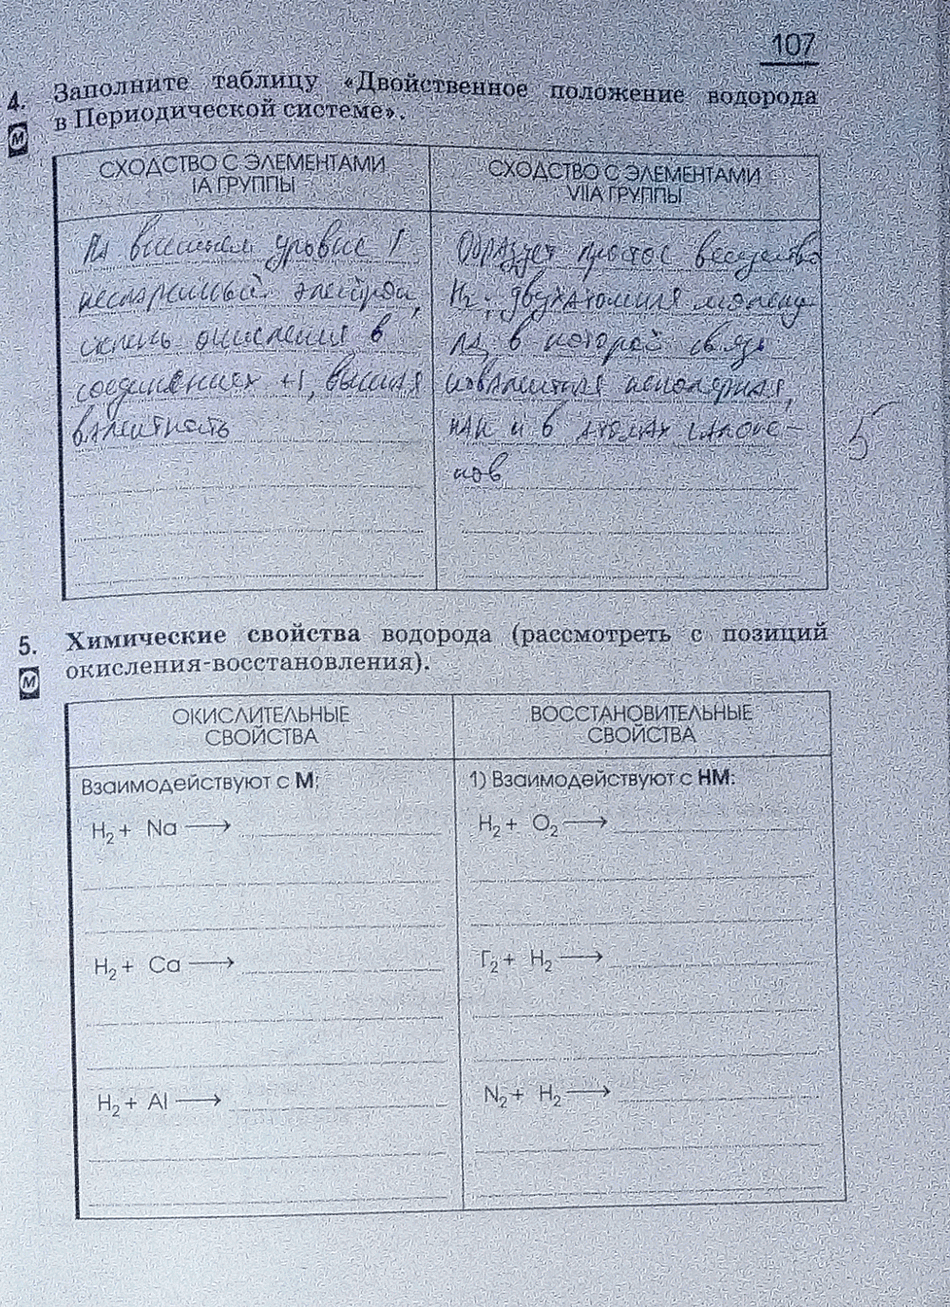 107
4. Заполните таблицу «Двойственное положение водорода
в Периодической системе».
М
СХОДСТВО С ЭЛЕМЕНТАМИ
IА ГРУППЫ
СХОДСТВО С ЭЛЕМЕНТАМИ
VIIА ГРУППЫ
На внешнем уровне 1
неспаренный электрон,
степень окисления в
соединениях +1, высшая
валентность
Образует простое вещество
H₂, двухатомная молеку
ла, в которой связь
ковалентная неполярная,
как и в атомах галоге-
нов
5
5. Химические свойства водорода (рассмотреть с позиций
окисления-восстановления).
М
ОКИСЛИТЕЛЬНЫЕ
СВОЙСТВА
ВОССТАНОВИТЕЛЬНЫЕ
СВОЙСТВА
Взаимодействуют с М:
H₂ + Na →
H₂ + Ca →
H₂ + Al →
1) Взаимодействуют с НМ:
H₂ + O₂ →
Г₂ + H₂ →
N₂ + H₂ →